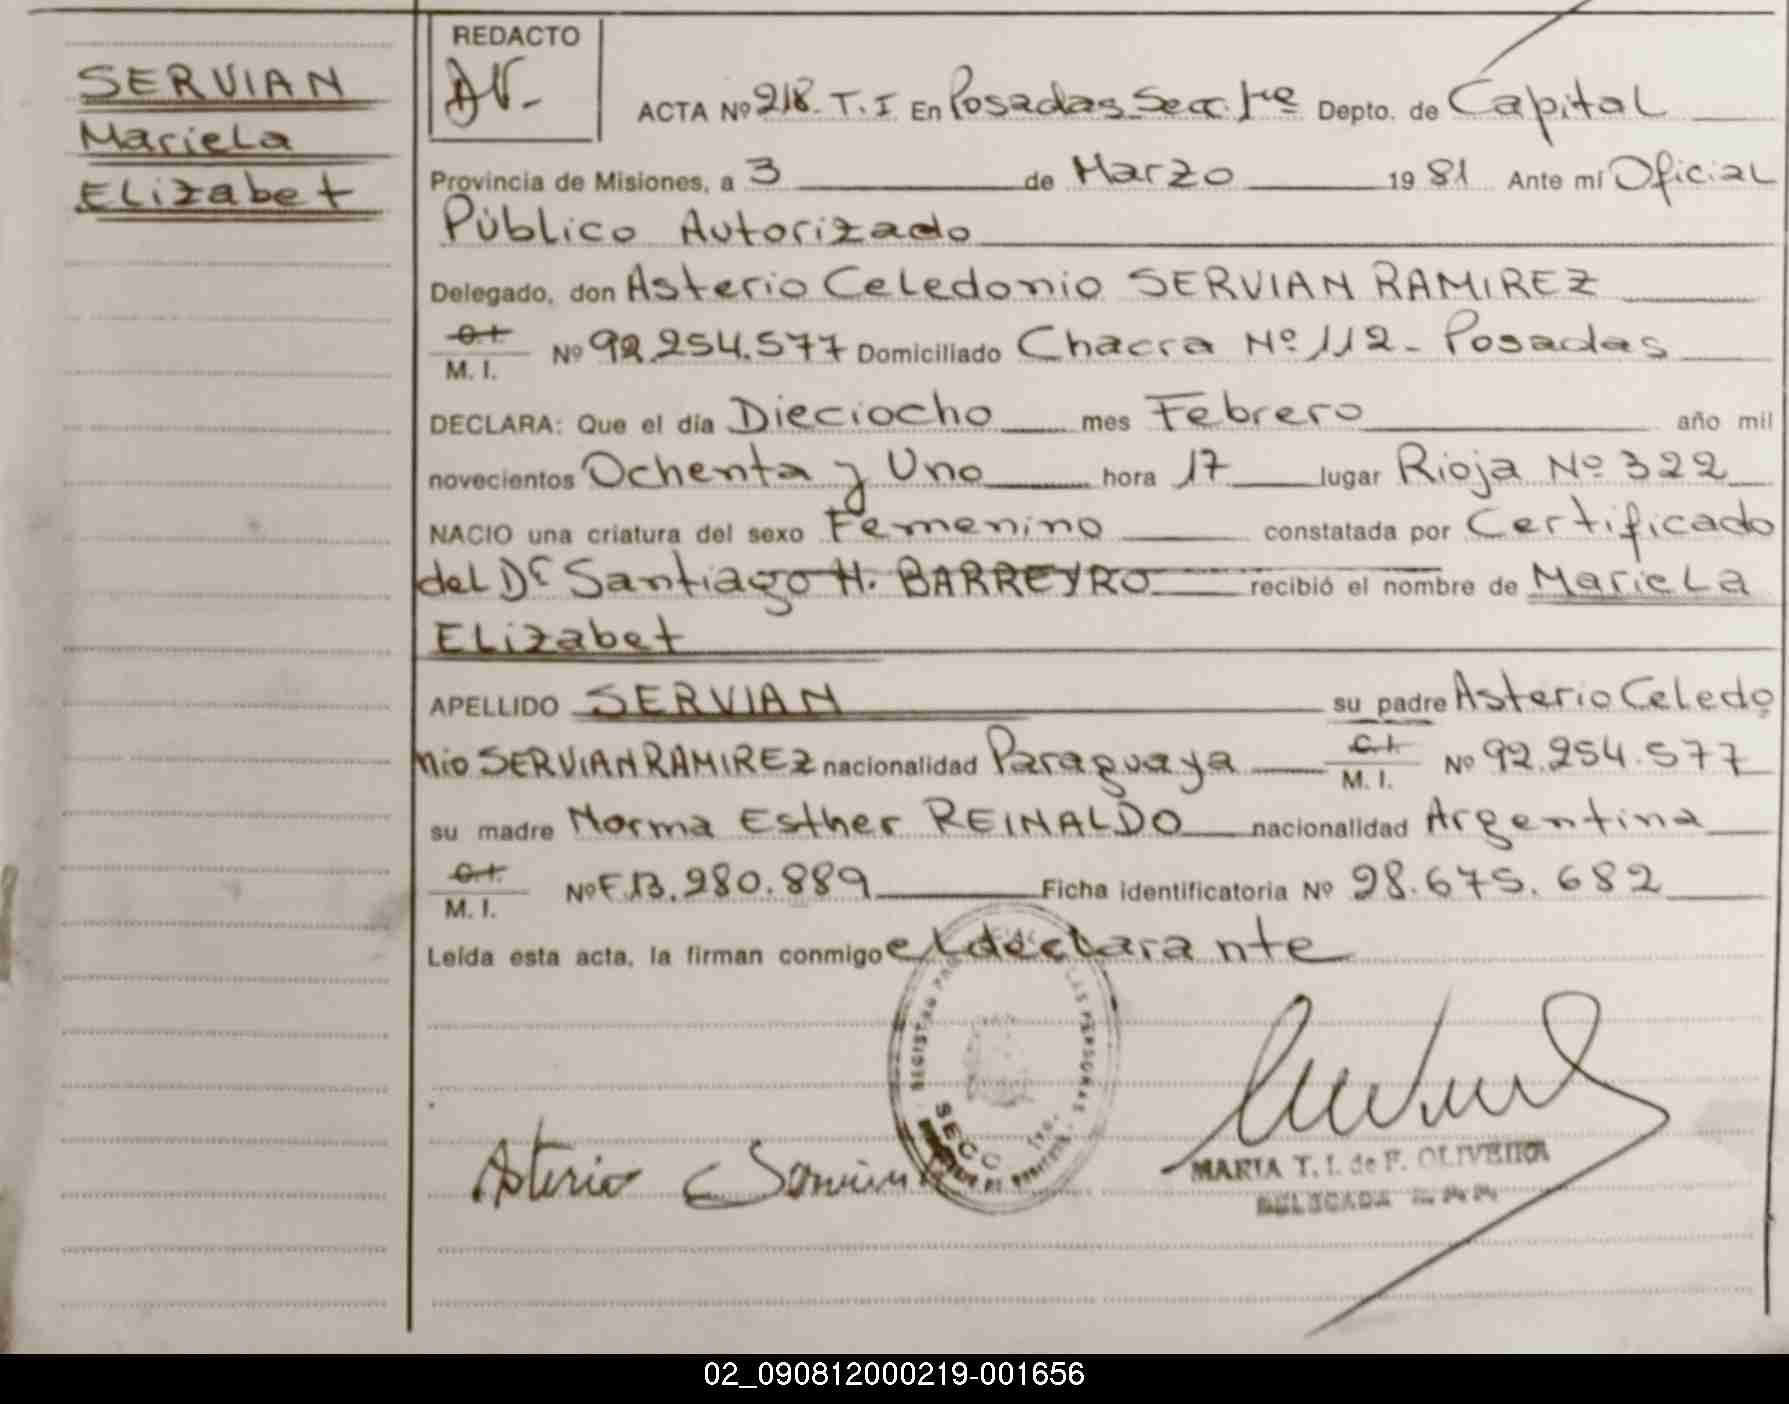 SERVIAN
Mariela
Elizabet
REDACTO
ACTA Nº 218. T. I En Posadas Secc. 1ra Depto. de Capital
Provincia de Misiones, a 3 de Marzo 1981 Ante mí Oficial
Público Autorizado
Delegado, don Asterio Celedonio SERVIAN RAMIREZ
C.I. M. I. Nº 92.254.577 Domiciliado Chacra Nº 112 - Posadas
DECLARA: Que el día Dieciocho mes Febrero año mil
novecientos Ochenta y Uno hora 17 lugar Rioja Nº 322
NACIO una criatura del sexo Femenino constatada por Certificado
del Dr Santiago H. BARREYRO recibió el nombre de Mariela
Elizabet
APELLIDO SERVIAN su padre Asterio Celedo
nio SERVIAN RAMIREZ nacionalidad Paraguaya C.I. M. I. Nº 92.254.577
su madre Norma Esther REINALDO nacionalidad Argentina
C.I. M. I. Nº F.13.280.889 Ficha identificatoria Nº 28.675.682
Leída esta acta, la firman conmigo el declarante
REGISTRO LAS PERSONAS
SECC 1ra.
Asterio Servian
MARIA T. I. de F. OLIVEIRA
DELEGADA
02_090812000219-001656